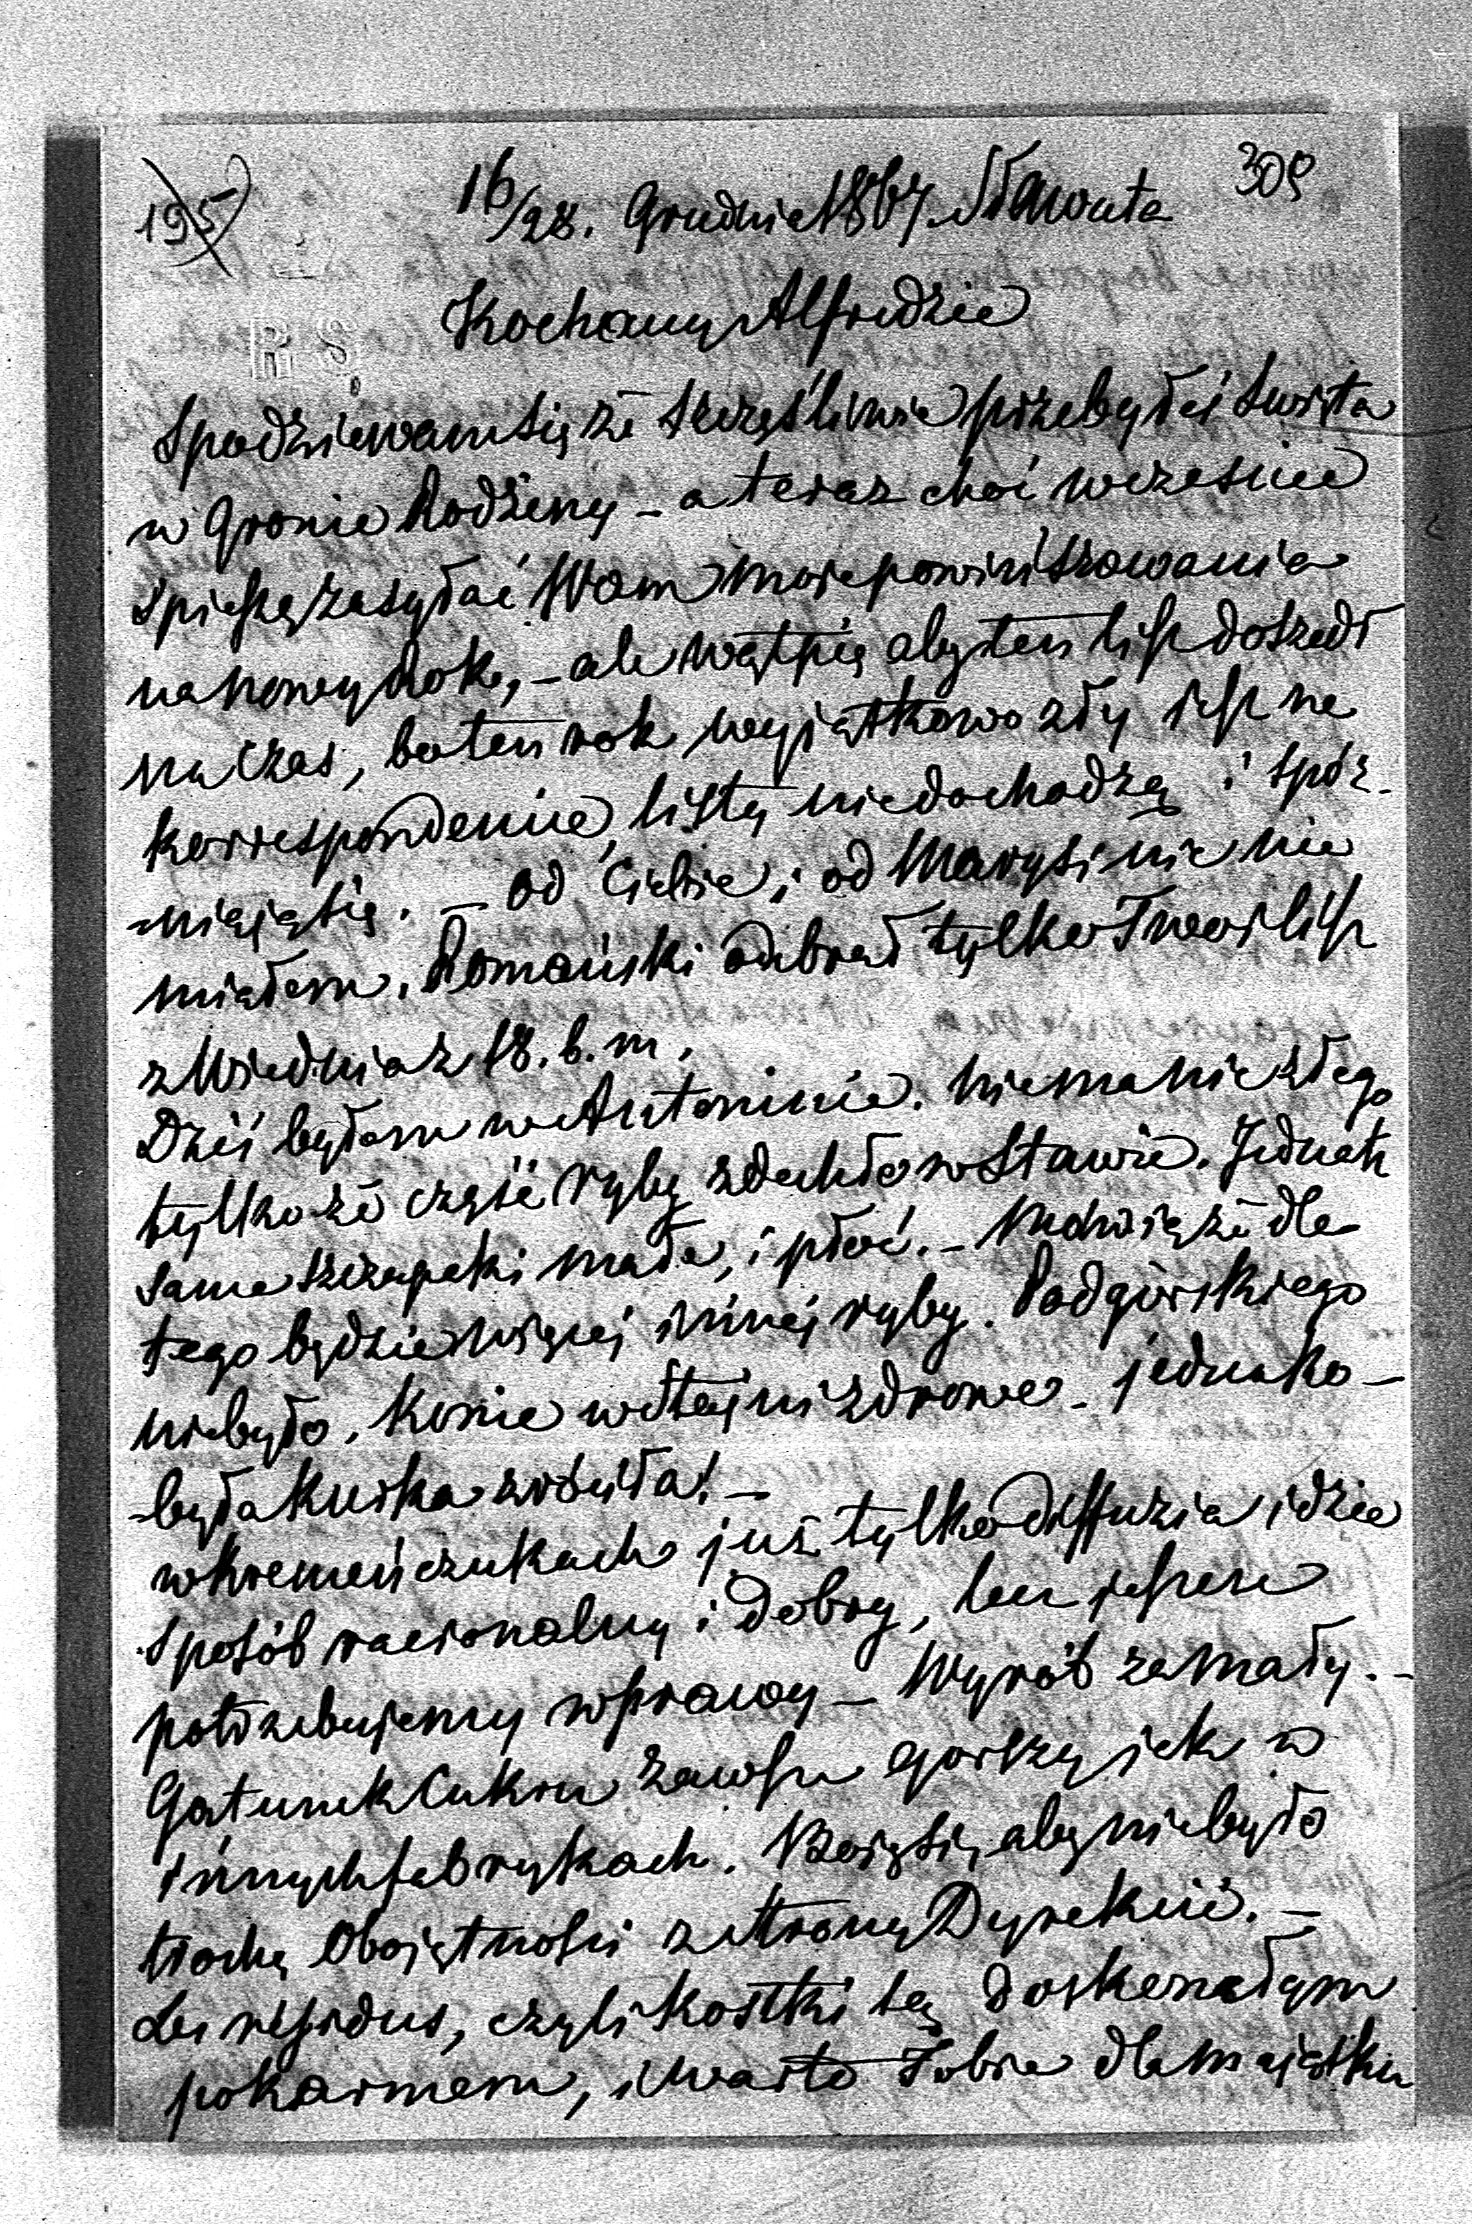 195 16/28. Grudnia 1867. Sławuta 309
R S
Kochany Alfredzie
Spodziewam się że szczęśliwie przebyłeś Święta
w Gronie Rodziny – a teraz choć wcześnie
spieszę zasyłać Wam moje powinszowania
na nowy Rok, – ale wątpię aby ten list doszedł
na czas, bo ten rok wyjątkowo zły jest na
korrespondencie, listy niedochodzą i spóź-
niają się. – od Ciebie, i od Marysi nic nie
miałem. Romański odebrał tylko Twój list
z Wiednia z 18. b. m.
Dziś byłem w Antoninie. niema nic złego
tylko że część ryby zdechło w Stawie. Jednak
same szczupaki małe, i płoć. – Mówią że dla
tego będzie więcej innej ryby. Podgórskiego
niebyło. Konie w Stajni zdrowe – jedna ko-
była Kurka zrobiła! –
w Kremeńczukach już tylko diffuzia idzie
sposób racionalny i dobry, lecz jeszcze
potrzebujemy wprawy – Wyrób za mały. –
Gatunek Cukru zawsze gorszy jak w
innych fabrykach. Boję się aby niebyło
trochę Obojętności ze strony Dyrekcii. –
Les résidus, czyli kostki są doskonałym
pokarmem, i warto Tobie dla majątku